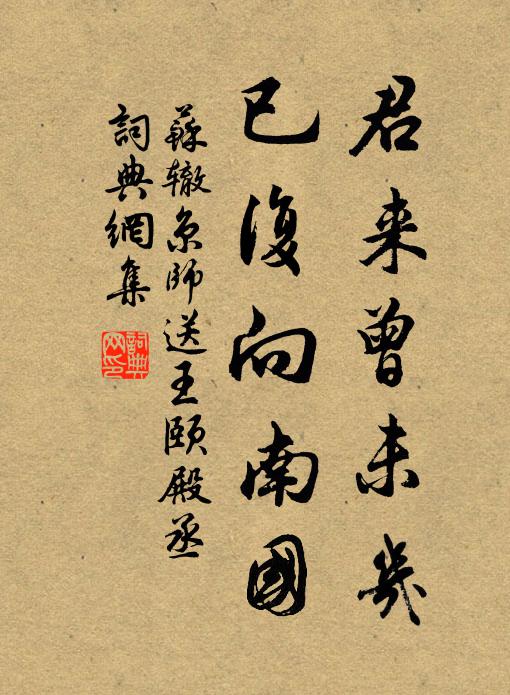 君来曾未幾
已復向南國
蘇辙京師送王頤殿丞
詞典網集
詞典
网印